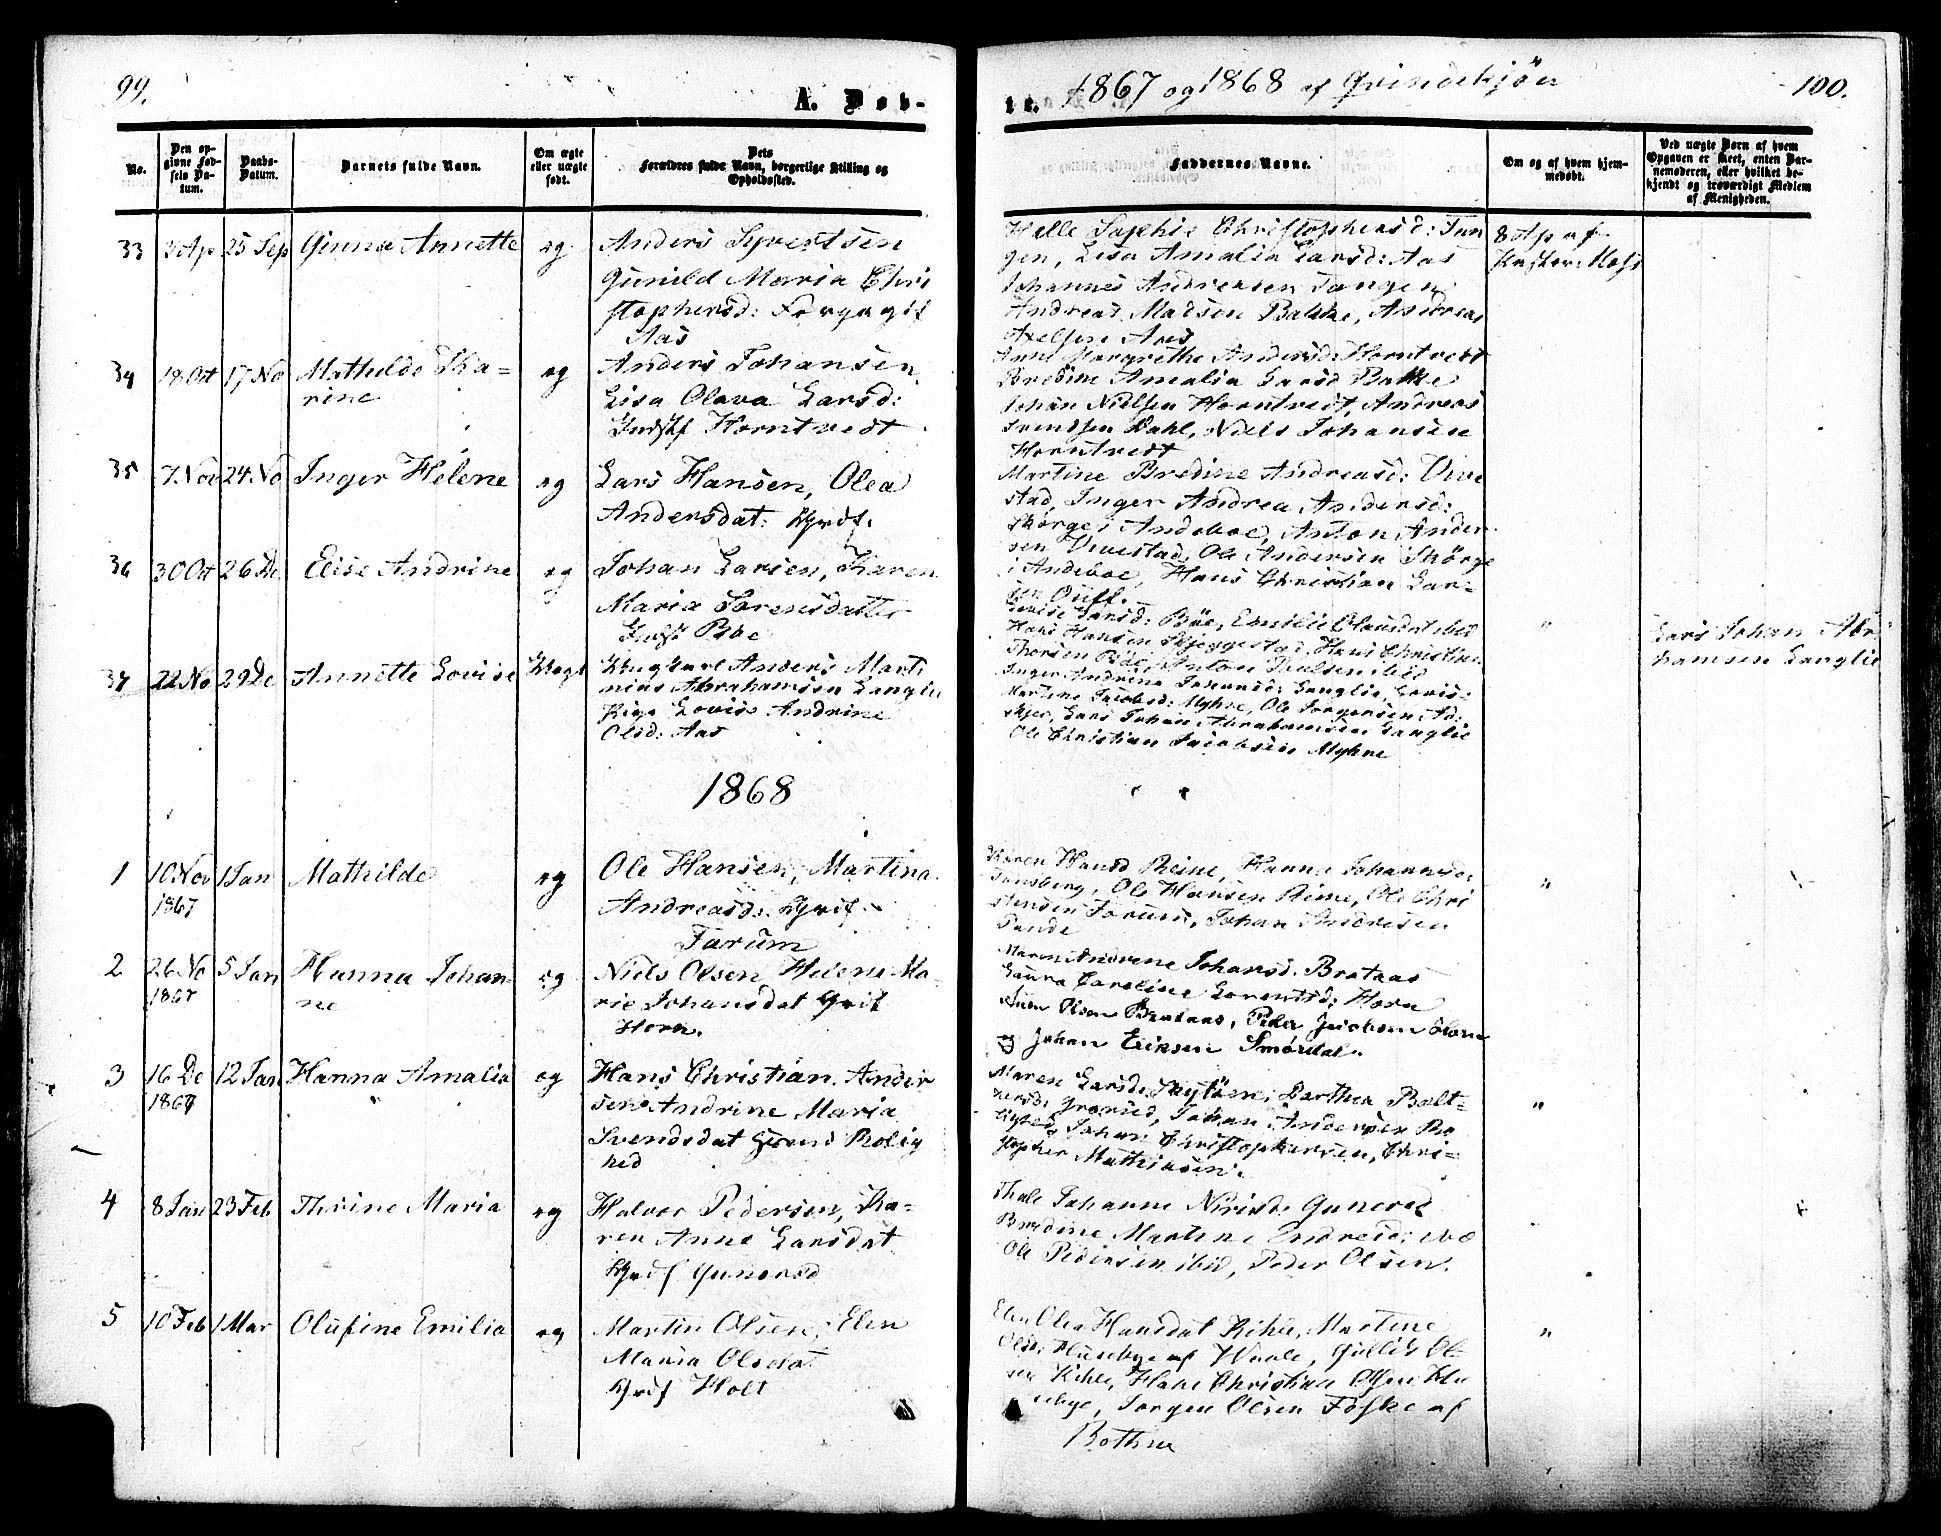 99.
A. Døb-
te.
1867 og 1868 af Qvindekjön
100.
No.
Den op-
givne Fød-
sels Da-
tum.
Daabs-
Datum.
Barnets fulde Navn.
Om ægte
eller uægte
født.
Dets
Forældres fulde Navn, borgerlige Stilling og
Opholdssted.
Faddernes Navne.
Om og af hvem hjem-
medøbt.
Ved uægte Børn af hvem
Opgaven er skeet, enten Bar-
nemoderen, eller hvilket be-
kjendt og troværdigt Medlem
af Menigheden.
33 3 Ap 25 Sep Gunna Annette æg
Anders Syvertsen
Gunild Maria Chri
stophersd:
Aas
Helle Sophie Christophersd: Tan
gen, Lisa Amalia Larsd: Aas
Johannes Andreasen Tangen
Andreas Madsen Bakke, Andreas
Axelsen Aas
8 Ap af
34 18 Ott 17 No Mathilde Ka-
rine
æg
Anders Johansen
Lisa Olava Larsd:
Indst Horntvedt
Anne Margrethe Andersd: Horntvedt
Bredine Amalia Larsd Bakke
Johan Nielsen Horntvedt, Andreas
Svendsen Dahl, Niels Johansen
Horntvedt
35 7 Nov 24 No Inger Helene æg
Lars Hansen, Olea
Andersdat:
Martine Bredine Andreasd: Vive
stad, Inger Andrea Andersd:
Skörge i Andeboe, Anton Ander
sen Vivestad, Ole Andersen Skörge
i Andeboe, Hans Christian Lar-
sen
36 30 Ott 26 De Elise Andrine æg
Johan Larsen, Karen
Maria Sörensdatter
Indst Böe
Lovise Larsd: Böe, Emilie Olausdat ibid
Hans Hansen Skjeggestad, Hans Christian
Thorsen Böe, Anton Paulsen ibid
"
37 22 No 29 De Annette Lovise Uægt
Ungkarl Anders Marti
nius Abrahamsen Langlie
Pige Lovise Andrine
Olsd: Aas
Inger Andrina Johansd: Langlie, Lovise
Martine Jacobsd: Myhre, Ole Jörgensen
Lars Johan Abrahamsen Langlie
Ole Christian Jacobsen Myhre
Lars Johan Abra
hamsen Langlie
1868
" "
1 10 Nov
1867
1 Jan Mathilde æg
Ole Hansen, Martina
Andreasd:
Farum
Karen Hansd Reine, Hanna Johannesd:
Tönsberg, Ole Hansen Reine, Ole Chri
stensen Farum, Johan Andresen
"
2 26 No
1867
5 Jan Hanna Johan-
ne
æg
Niels Olsen, Helene Ma-
rie Johansdat
Horn.
Maren Andrene Johansd. Brataas
Laura Caroline Lorentsd: Horn
Olsen Brataas, Peder Jacobsen Horn
og Johan Eriksen Smördal.
3 16 De
1867
12 Jan Hanna Amalia æg
Hans Christian Ander
sen Andrine Maria
Svendsdat Rolig
hed
Maren Larsd: Berthea Balt-
zersd: Johan Andersen Ro
lighed, Johan Christophersen, Chri-
stopher Mathiasen.
"
4 8 Jan 23 Feb Thrine Maria æg
Halvor Pedersen, Ka-
ren Anne Larsdat
Gunerød
Thale Johanne Gunerød
Bredine Martine
Ole Pedersen ibid, Peder Olsen.
5 10 Feb 1 Mar Olufine Emilia æg
Martin Olsen, Elen
Maria Olsdat
Holt
Elen Olea Hansdat Kihle, Martine
Olsd: Husebye af Waale, Gullik Ol-
sen Kihle, Hans Christian Olsen Hu
sebye, Jörgen Olsen af
Bothne
"